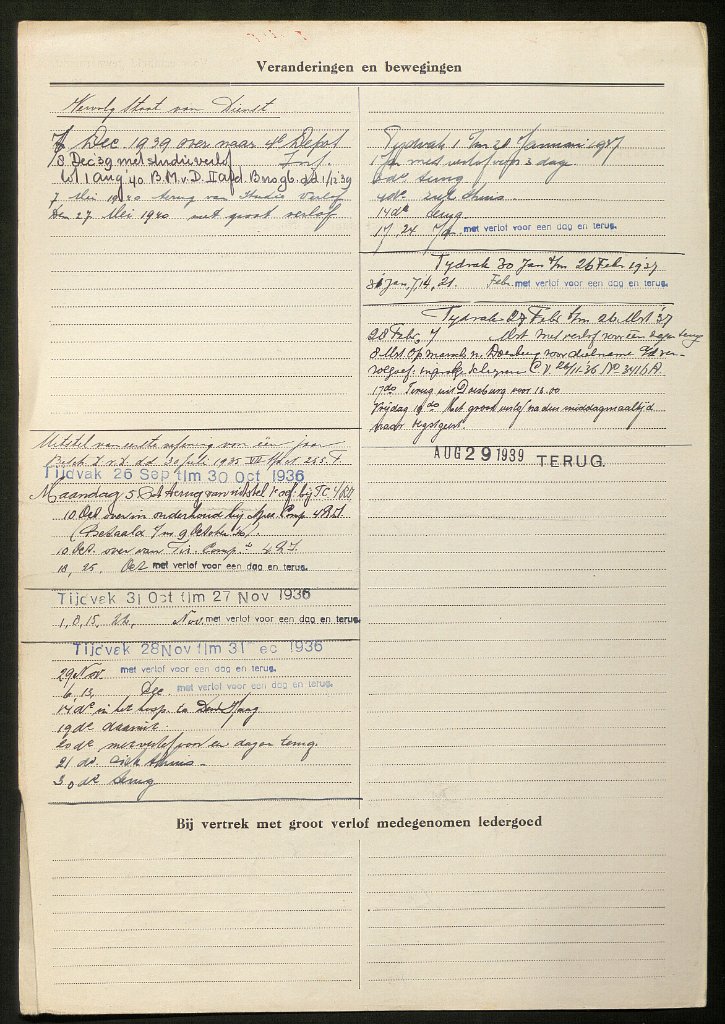 Veranderingen en bewegingen
Vervolg Staat van Dienst
7 Dec 1939 over naar 4e Depot
8 Dec 39 met studieverlof Inf.
tot 1 aug '40 B.M.v.D. II afd B no 96 dd 1/12 '39
7 Mei 1940 terug van studie verlof
Den 27 Mei 1940 met groot verlof
Uitstel van eerste oefening van één jaar
Besch. dd 30 juli 1935
Tijdvak 26 Sep t/m 30 Oct 1936
Maandag 5 Oct terug van uitstel 1e oef. bij
10 Oct over in onderhoud bij Comp. 4 R.I.
(Betaald t/m 9 October)
10 Oct. over van Comp. 4 R.I.
18, 25, Oct met verlof voor een dag en terug.
Tijdvak 31 Oct t/m 27 Nov 1936
1, 8, 15, 22, Nov. met verlof voor een dag en terug.
Tijdvak 28 Nov t/m 31 ec 1936
29 Nov. met verlof voor een dag en terug.
6, 13, Dec. met verlof voor een dag en terug.
14de in het hosp. te Den Haag
19de daaruit
20de met verlof voor een dag en terug.
21 de. ziek thuis
30 de terug
Tydvak 1 t/m 29 Januari 1937
1 Jan met verlof voor 3 dagen
3de terug
4de ziek thuis.
14de terug.
17, 24 Jan. met verlof voor een dag en terug.
Tydvak 30 Jan t/m 26 Febr. 1937
31 Jan, 7, 14, 21. Febr. met verlof voor een dag en terug.
Tydvak 27 Febr t/m 26 Mrt '37
28 Febr, 7 Mrt met verlof voor één dag en terug
8 Mrt Op marsch n. Doesburg voor deelname
telegram C.V. 26/11-36 No 341
17do Terug uit Doesburg voor 13.00
Vrijdag 19do Met groot verlof na den middagmaaltijd
AUG 29 1939 TERUG.
Bij vertrek met groot verlof medegenomen ledergoed